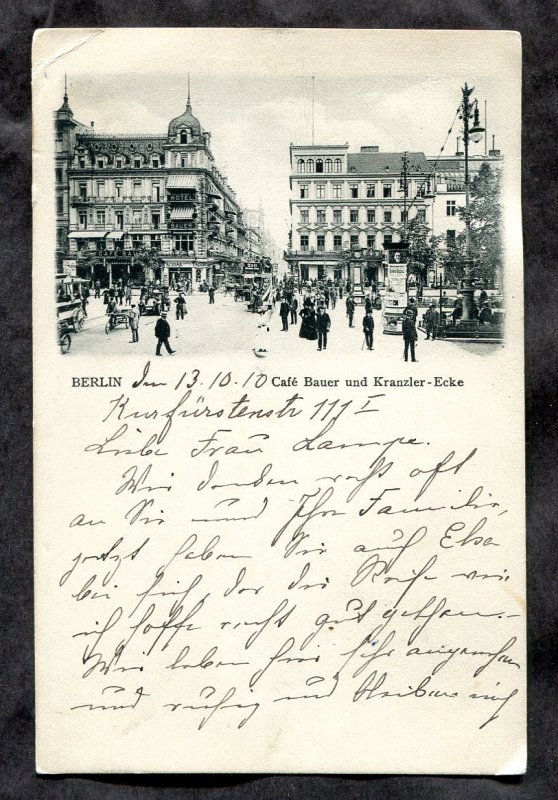 HOTEL
BERLIN Den 13.10.10 Café Bauer und Kranzler-Ecke
Kurfürstenstr 111 I
Liebe Frau Lampe.
Wir denken recht oft
an Sie und Ihre Familie,
jetzt haben Sie auch Elsa
bei sich, der die Reise wie
ich hoffe recht gut gethan.
Wir leben hier sehr angenehm
und ruhig und bleiben